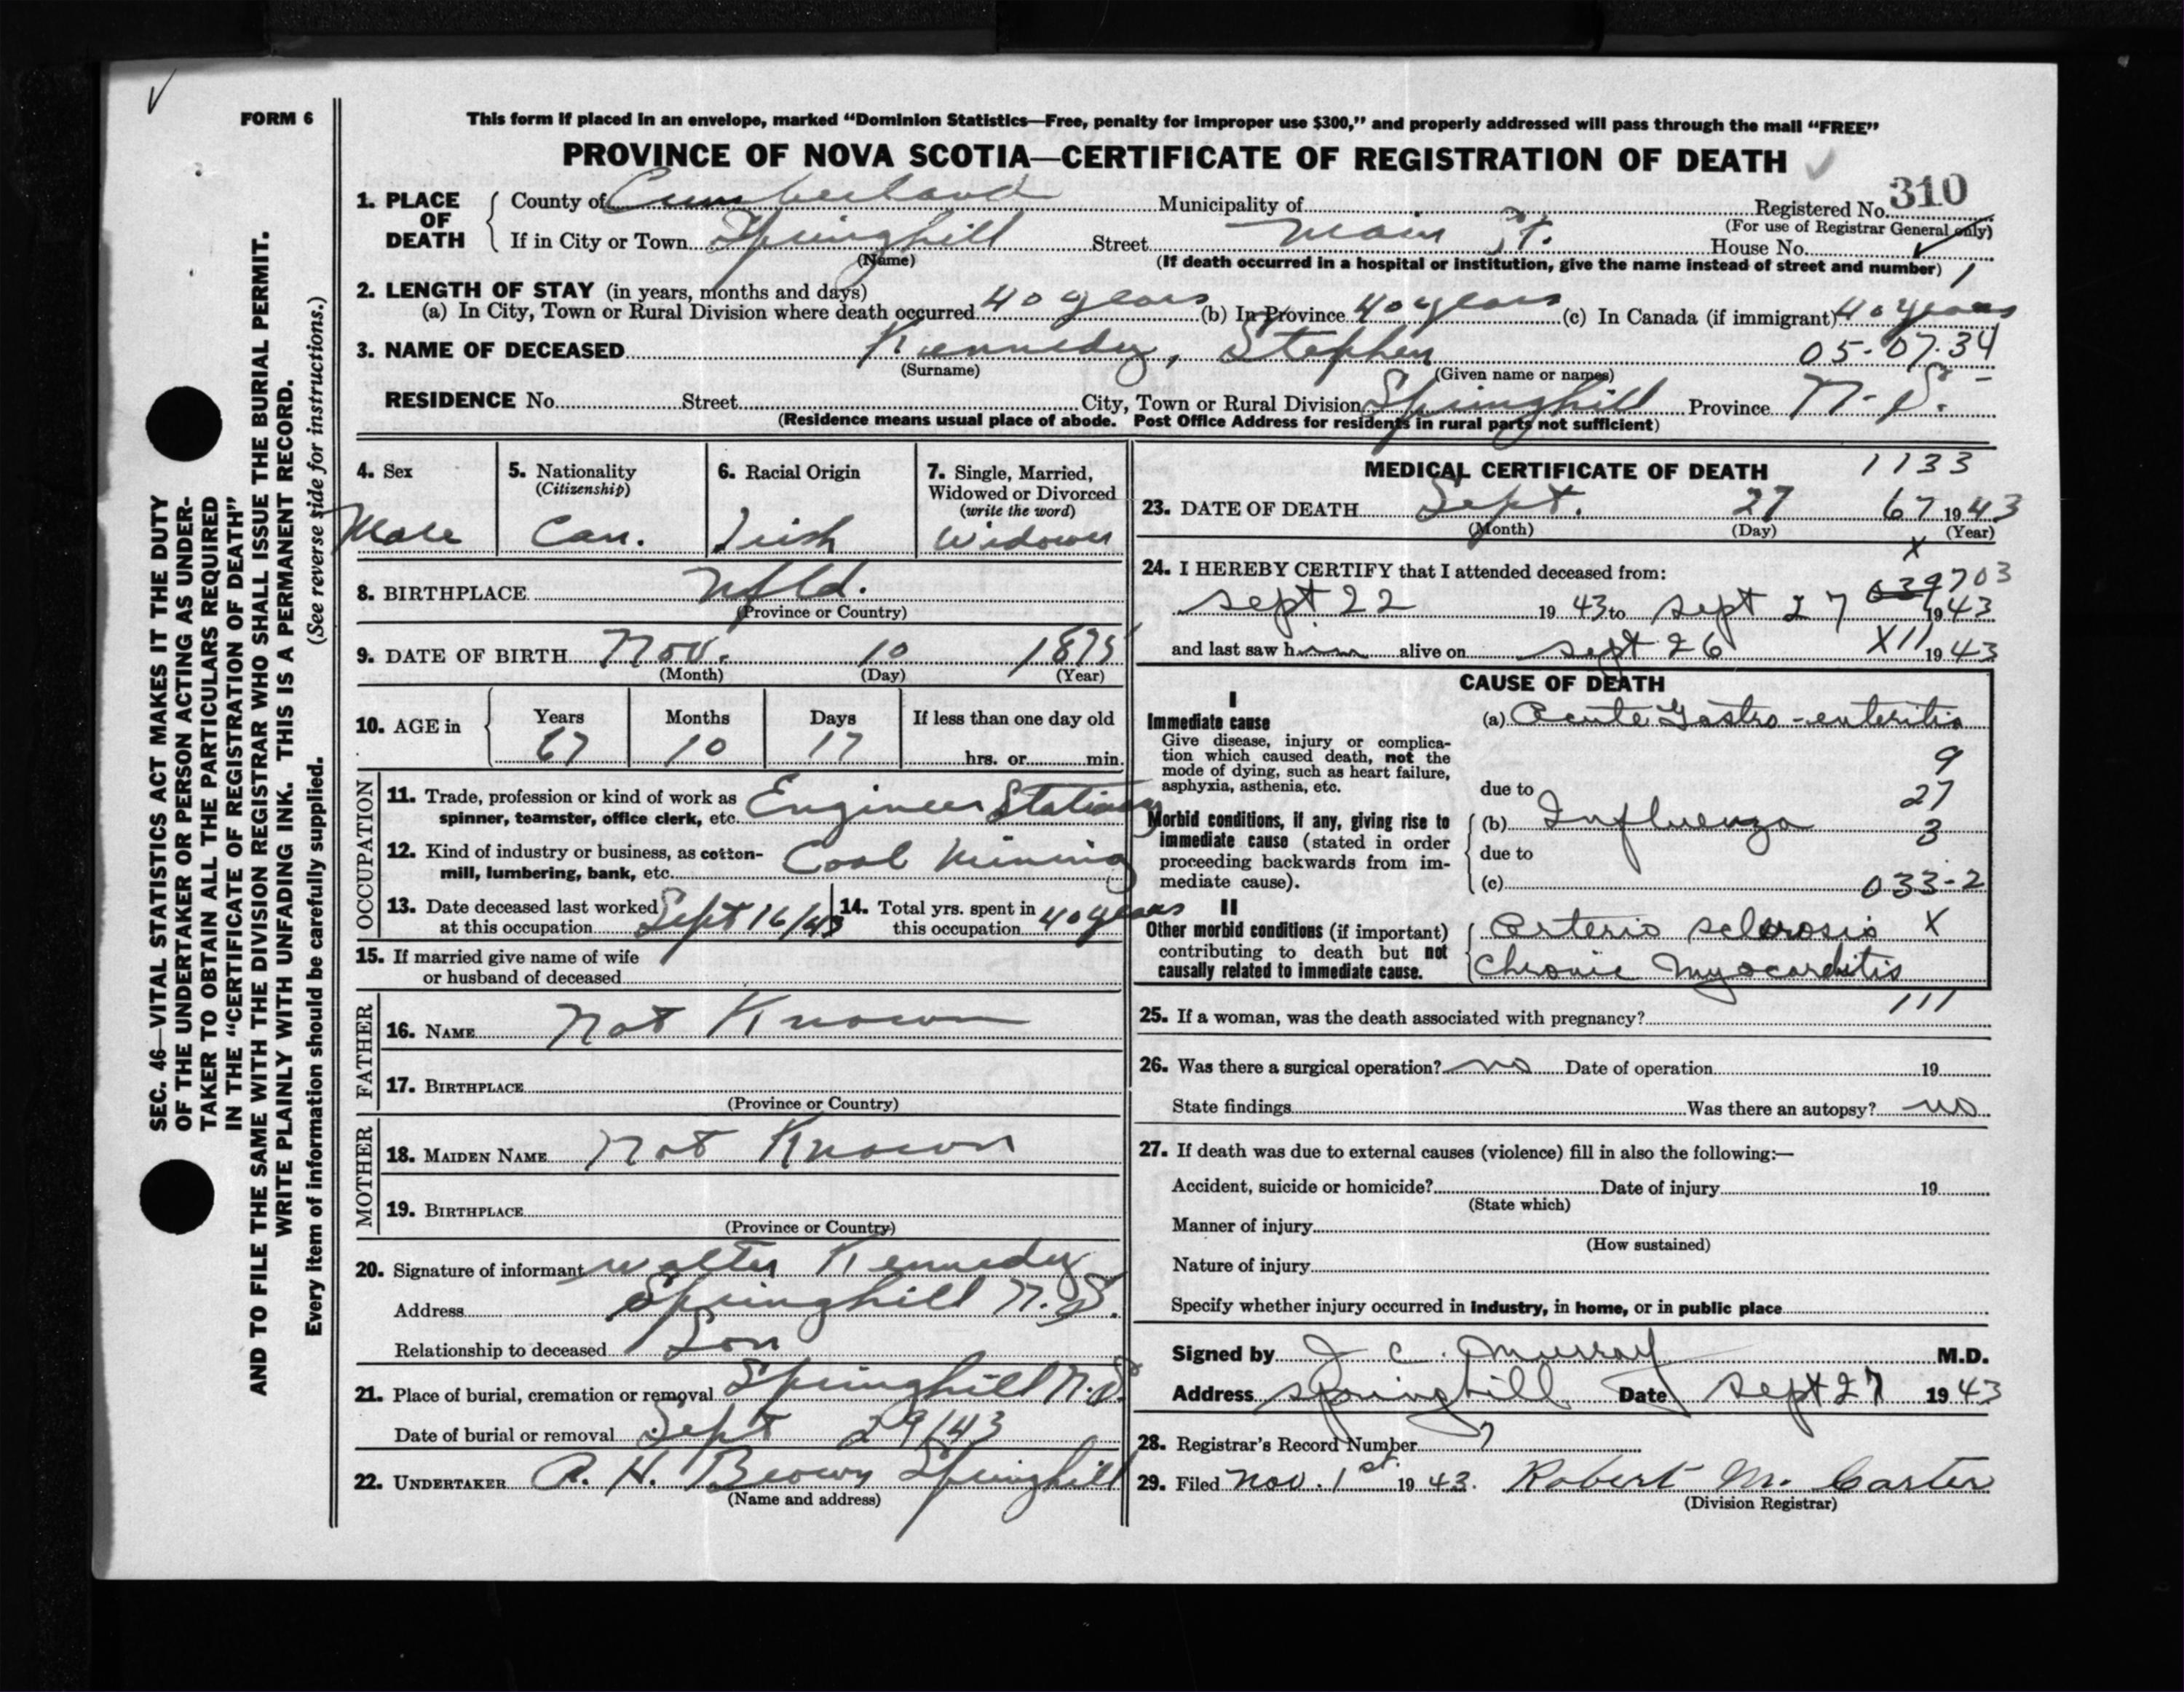 FORM 6
This form if placed in an envelope, marked “Dominion Statistics—Free, penalty for improper use $300,” and properly addressed will pass through the mail “FREE”
PROVINCE OF NOVA SCOTIA—CERTIFICATE OF REGISTRATION OF DEATH
1. PLACE OF DEATH
County of Cumberland Municipality of Registered No. 310
(For use of Registrar General only)
If in City or Town Springhill Street Main St. House No.
(Name) (If death occurred in a hospital or institution, give the name instead of street and number) 1
2. LENGTH OF STAY (in years, months and days)
(a) In City, Town or Rural Division where death occurred 40 years (b) In Province 40 years (c) In Canada (if immigrant) 40 years
3. NAME OF DECEASED Kennedy, Stephen 05-07-34
(Surname) (Given name or names)
RESIDENCE No. Street City, Town or Rural Division Springhill Province N.S.
(Residence means usual place of abode. Post Office Address for residents in rural parts not sufficient)
4. Sex
Male
5. Nationality
(Citizenship)
Can.
6. Racial Origin
Irish
7. Single, Married,
Widowed or Divorced
(write the word)
Widower
8. BIRTHPLACE Nfld.
(Province or Country)
9. DATE OF BIRTH Nov. 10 1875
(Month) (Day) (Year)
10. AGE in Years Months Days If less than one day old
67 10 17 hrs. or min.
OCCUPATION
11. Trade, profession or kind of work as
spinner, teamster, office clerk, etc. Engineer Stationary
12. Kind of industry or business, as cotton-
mill, lumbering, bank, etc. Coal Mining
13. Date deceased last worked
at this occupation Sept 16/43
14. Total yrs. spent in
this occupation 40 years
15. If married give name of wife
or husband of deceased
FATHER
16. NAME Not Known
17. BIRTHPLACE
(Province or Country)
MOTHER
18. MAIDEN NAME Not Known
19. BIRTHPLACE
(Province or Country)
20. Signature of informant Walter Kennedy
Address Springhill N.S.
Relationship to deceased Son
21. Place of burial, cremation or removal Springhill N.S.
Date of burial or removal Sept 29/43
22. UNDERTAKER A. H. Brown Springhill
(Name and address)
MEDICAL CERTIFICATE OF DEATH 1133
23. DATE OF DEATH Sept. 27 67 1943
(Month) (Day) (Year)
X
24. I HEREBY CERTIFY that I attended deceased from:
039703
Sept 22 1943 to Sept 27 1943
and last saw him alive on Sept 26 XII 1943
CAUSE OF DEATH
I
Immediate cause
Give disease, injury or complica-
tion which caused death, not the
mode of dying, such as heart failure,
asphyxia, asthenia, etc.
(a) Acute Gastro-enteritis
9
due to 27
Morbid conditions, if any, giving rise to
immediate cause (stated in order
proceeding backwards from im-
mediate cause).
(b) Influenza 3
due to
(c) 033-2
II
Other morbid conditions (if important)
contributing to death but not
causally related to immediate cause.
Arterio sclerosis X
Chronic Myocarditis
111
25. If a woman, was the death associated with pregnancy?
26. Was there a surgical operation? no Date of operation 19
State findings Was there an autopsy? no
27. If death was due to external causes (violence) fill in also the following:—
Accident, suicide or homicide? Date of injury 19
(State which)
Manner of injury
(How sustained)
Nature of injury
Specify whether injury occurred in industry, in home, or in public place
Signed by J C Murray M.D.
Address Springhill Date Sept 27 1943
28. Registrar's Record Number 7
29. Filed Nov. 1st 1943. Robert M. Carter
(Division Registrar)
SEC. 46—VITAL STATISTICS ACT MAKES IT THE DUTY
OF THE UNDERTAKER OR PERSON ACTING AS UNDER-
TAKER TO OBTAIN ALL THE PARTICULARS REQUIRED
IN THE “CERTIFICATE OF REGISTRATION OF DEATH”
AND TO FILE THE SAME WITH THE DIVISION REGISTRAR WHO SHALL ISSUE THE BURIAL PERMIT.
WRITE PLAINLY WITH UNFADING INK. THIS IS A PERMANENT RECORD.
Every item of information should be carefully supplied. (See reverse side for instructions.)